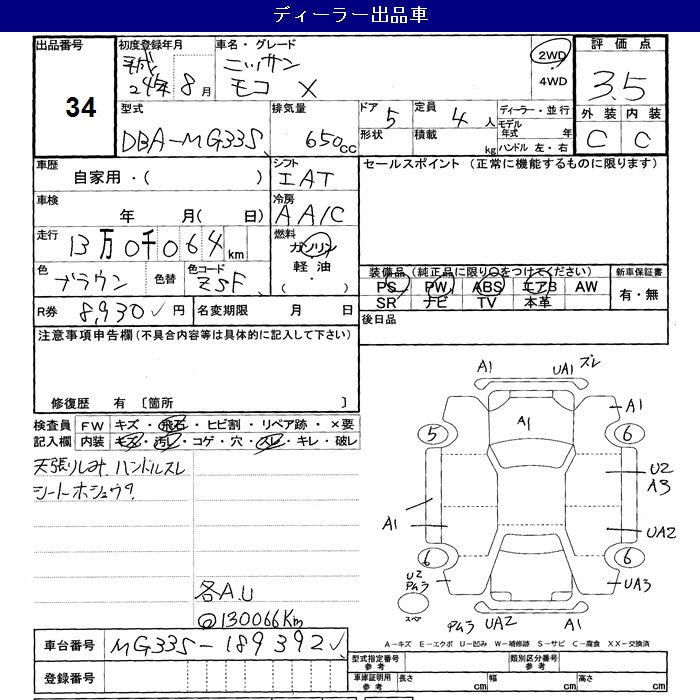 ディーラー出品車
出品番号 34
初度登録年月 平成 24年 8月
車名・グレード ニッサン モコ X
2WD 4WD
評価点 3.5
外装 内装
C C
型式 DBA-MG33S
排気量 650cc
ドア 5 形状
定員 4人 積載 kg
ディーラー・並行
モデル年式 年
ハンドル 左・右
車歴 自家用・( )
シフト IAT
セールスポイント (正常に機能するものに限ります)
車検 年 月( 日)
冷房 AA/C
走行 13万0千064km
燃料 ガソリン 軽油・( )
色 ブラウン 色替 色コード ZSF
装備品(純正品に限り○をつけてください) 新車保証書
PS PW ABS エアB AW 有・無
SR ナビ TV 本革
R券 8,930円 名変期限 月 日
後日品
注意事項申告欄(不具合内容等は具体的に記入して下さい)
修復歴 有 〔箇所 〕
検査員記入欄 FW キズ・飛石・ヒビ割・リペア跡・×要
内装 キズ・汚レ・コゲ・穴・スレ・キレ・破レ
天張りしみ ハンドルスレ
シートホシュウ
各A.U
@130066Km
A1 UA1 ズレ
A1 A1
5 6
U2
A3
A1 UA2
6 6
U2
PA3 UA3
スペア PA3 UA2 A1
A-キズ E-エクボ U-凹み W-補修跡 S-サビ C-腐食 XX-交換済
車台番号 MG33S-189392
型式指定番号 参考 類別区分番号 参考
登録番号
車庫証明用 参考 長さ cm 幅 cm 高さ cm